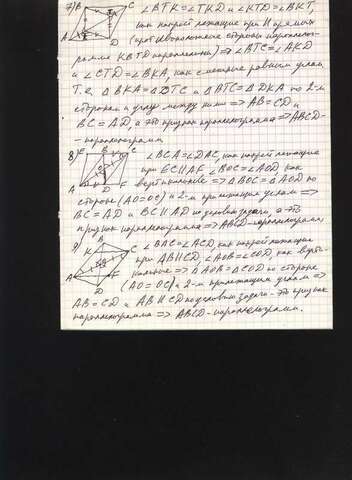 7) B C ∠BTK = ∠TKD и ∠KTD = ∠BKT,
A D как накрест лежащие при II прямых
(противоположные стороны параллело-
грамма KBTD параллельны) => ∠BTC = ∠AKD
и ∠CTD = ∠BKA, как смежные равным углам
Т.е. ΔBKA = ΔDTC и ΔBTC = ΔDKA по 2-м
сторонам и углу между ними => AB = CD и
BC = AD, а это признак параллелограмма => ABCD-
- параллелограмм
8) E B C ∠BCA = ∠DAC, как накрест лежащие
O при EC II AF ∠BOC = ∠AOD, как
A D F вертикальные => ΔBOC = ΔAOD по
стороне (AO = OC) и 2-м прилежащим углам =>
BC = AD и BC II AD по условию задачи, а это
признак параллелограмма => ABCD - параллелограмм
9) B ∠BAC = ∠ACD как накрест лежащие
K C при AB II CD, ∠AOB = ∠COD, как верти-
A O F кальные => ΔAOB = ΔCOD по стороне
D (AO = OC) и 2-м прилежащим углам =>
AB = CD и AB II CD по условию задачи - это признак
параллелограмма => ABCD - параллелограмм.